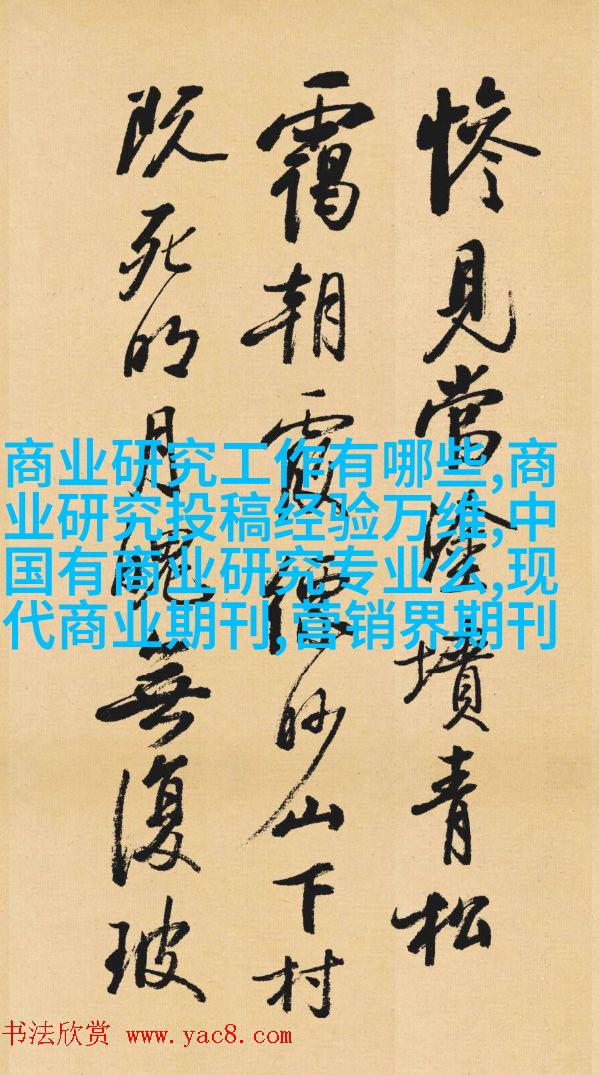 惨見當塗墳青松
靄朝霞縹眇山下村
既死明月魄無復玻
商业研究工作有哪些,商
业研究投稿经验万维,中
国有商业研究专业么,现
代商业期刊,营销界期刊
书法欣赏 www.yac8.com